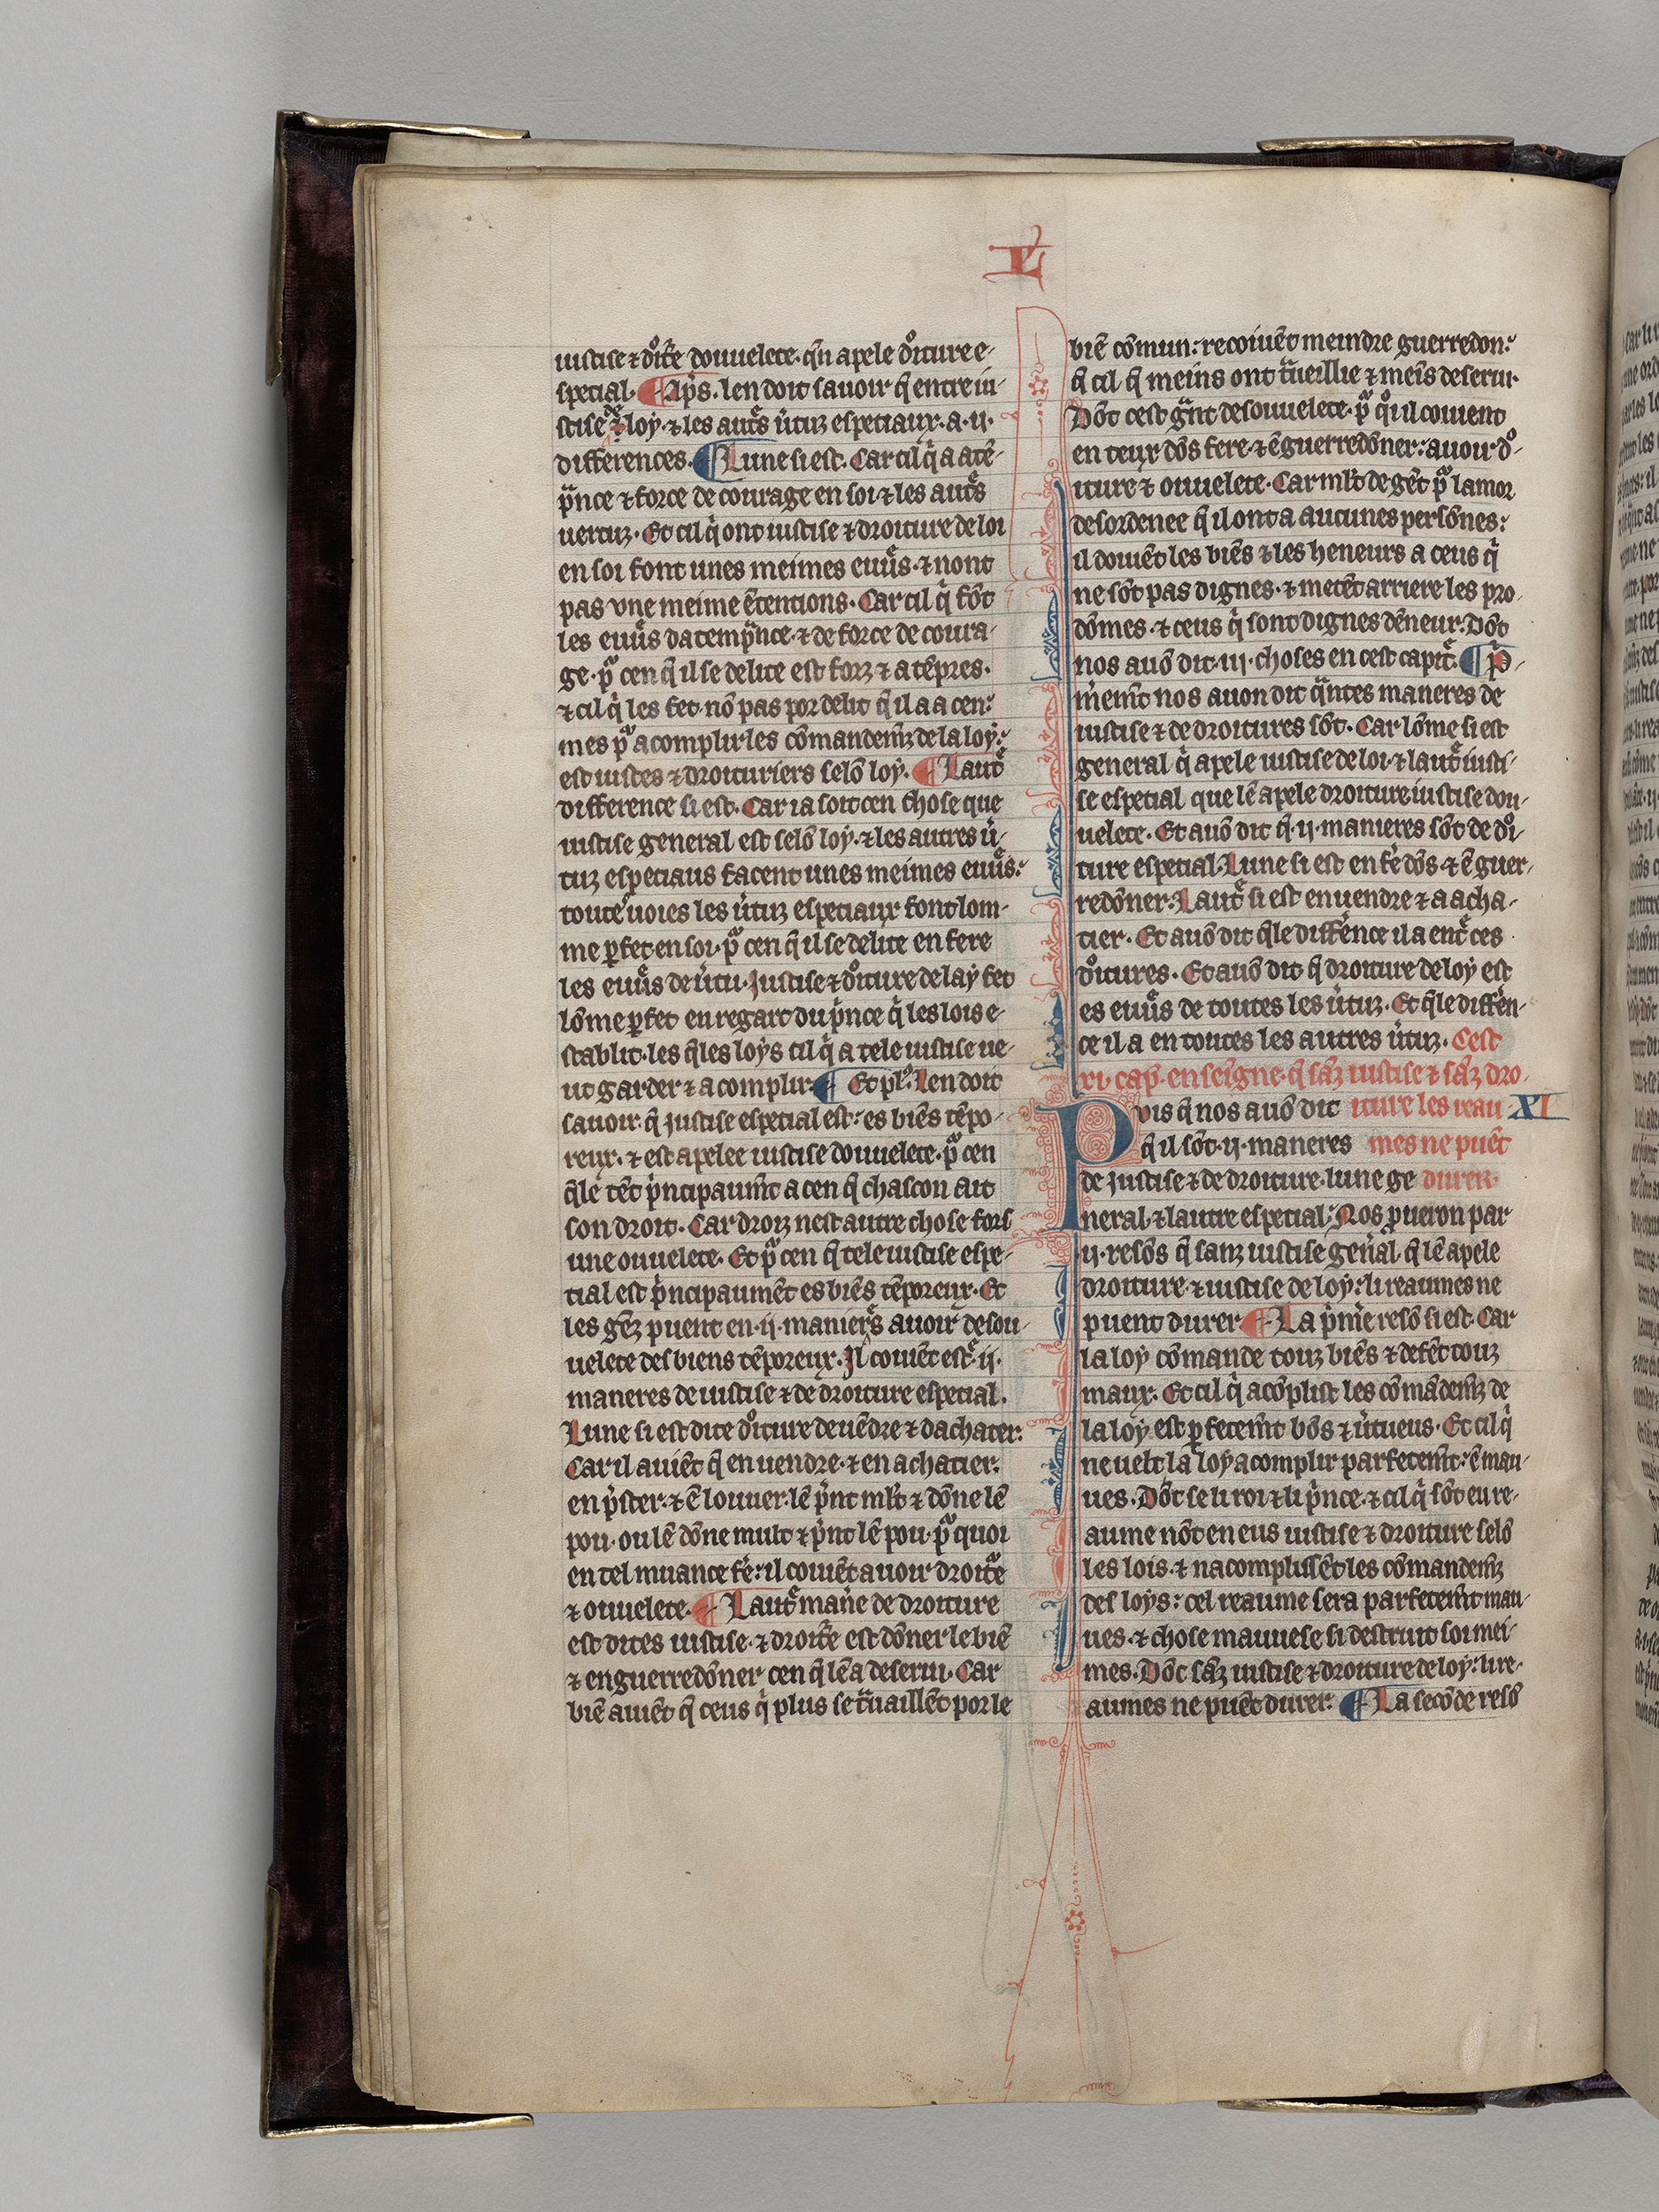 L
iustise ⁊ dͦitͤ douuelete. qͥn apele dͦiture e-
spetial. ¶ Ap̃s. len doit sauoir q̃ entre iu-
stise de loy. ⁊ les autͤs útuz espetiaux. a .ij.
differences. ¶ Lune si est. Car cil qͥ a atẽ-
p̃nce ⁊ force de courage en soi ⁊ les autͤs
uertuz. Et cil qͥ ont iustise ⁊ droiture de loi
en soi font unes meimes euuͤs. ⁊ nont
pas vne meime ẽtentions. Car cil qͥ fõt
les euuͤs datemp̃nce. ⁊ de force de coura-
ge. pͣ cen q̃ il se delite est forz ⁊ atẽpres.
⁊ cil qͥ les fet. nõ pas por delit q̃ il a a cen:
mes pͣ acomplir les cõmandem̃z de la loy:
est iustes ⁊ droituriers selõ loy. ¶ Lautͤ
difference si est. Car ia soit cen chose que
iustise general est selõ loy. ⁊ les autres ú-
tuz espetiaus facent unes meimes euuͤs:
toute uoies les útuz espetiaux font lom-
me ꝑfet en soi. pͣ cen q̃ il se delite en fere
les euuͤs de útu. Justise ⁊ dͦiture de lay fet
lõme ꝑfet en regart du pͥnce qͥ les lois e-
stablit. les q̃les loys cil qͥ a tele iustise ue-
ut garder ⁊ acomplir. ¶ Et plꝰ. Len doit
sauoir. q̃ justise espetial est: es biẽs tẽpo-
reux. ⁊ est apelee iustise douuelete. pͣ cen
q̃ le tẽt pͥncipaum̃t a cen q̃ chascon ait
son droit. Car droiz nest autre chose fors
une ouuelete. Et pͣ cen q̃ tele iustise espe-
tial est pͥncipaumẽt es biẽs tẽporeux. Et
les gẽz puent en .ij. manierͤs auoir desou-
uelete des biens tẽporeux. Il couiẽt estͤ .ij.
maneres de iustise ⁊ de droiture espetial.
Lune si est dite dͦiture de uẽdre ⁊ dachater:
Car il auiẽt q̃ en uendre. ⁊ en achatier.
en pͥster. ⁊ ẽ louuer. lẽ pͥnt ml̃t ⁊ dõne lẽ
pou. ou lẽ dõne mult ⁊ pͥnt lẽ pou. pͣ quoi
en tel muance fẽ: il couiẽt auoir droitͤ
⁊ ouuelete. ¶ Lautͤ mañe de droiture
est dites iustise. ⁊ droitͤ est dõner le biẽ
⁊ enguerredõner cen q̃ lẽ a deserui. Car
biẽ auiẽt q̃ ceus qͥ plus se tͣuaillẽt por le
biẽ cõmun: recoiuẽt meindre guerredon:
q̃ cil q̃ meins ont tͣueillie ⁊ meĩs deserui.
Dõt cest gͣnt desouuelete. pͣ qͦi il couient
en teux dõs fere. ⁊ ẽguerredõner: auoir dͦ-
iture ⁊ ouuelete. Car ml̃t de gẽt pͣ lamor
desordenee q̃ il ont a aucunes persõnes:
il douiẽt les biẽs ⁊ les heneurs a ceus qͥ
ne sõt pas dignes. ⁊ metẽt arriere les pro-
dõmes. ⁊ ceus qͥ sont dignes dẽneur. Dõt
nos auõ dit .iij. choses en cest capitͤ. ¶ P-
ͥmem̃t nos auon dit qͣntes maneres de
iustise ⁊ de droitures sõt. Car lõme si est
general qͥ apele iustise de loi. ⁊ lautͤ iusti-
se espetial que lẽ apele droiture iustise dou-
uelete. Et auõ dit q̃ .ij. manieres sõt de dͦi-
ture espetial. Lune si est en fẽ dõs. ⁊ ẽ guer-
redõner. Lautͤ si est en uendre ⁊ a acha-
tier. Et auõ dit q̃le diffẽnce il a entͤ ces
dͦitures. Et auõ dit q̃ droiture de loy est
es euuͤs de toutes les útuz. Et q̃le diffẽn-
ce il a en toutes les autres útuz. Cest
xi. cap̃. enseigne. q̃ sãz iustise ⁊ sãz dro-
Puis q̃ nos auõ dit iture les reau- XI
q̃ il sõt .ij. maneres mes ne puẽt
de justise ⁊ de droiture. lune ge durer.
neral. ⁊ lautre espetial: Nos ꝓueron par
.ij. resõs q̃ sanz iustise geñal. q̃ lẽ apele
droiture. ⁊ iustise de loy: li reaumes ne
puent durer ¶ La pͥmẽ resõ si est. Car
la loy cõmande touz biẽs ⁊ defẽt touz
maux. Et cil qͥ acõplist les cõmãdem̃z de
la loy est ꝑfetem̃t bõs ⁊ útueus. Et cil qͥ
ne uelt la loy acomplir parfetem̃t: ẽ mau-
ues. Dõt se li roi ⁊ li pͥnce. ⁊ cil qͥ sõt eu re-
aume nõt en eus iustise ⁊ droiture selõ
les lois. ⁊ nacomplissẽt les cõmandem̃z
des loys: cel reaume sera parfetem̃t mau-
ues. ⁊ chose mauuese si destruit soi mei-
mes. Dõt sãz iustise ⁊ droiture de loy: li re-
aumes ne puẽt durer: ¶ La secõde resõ